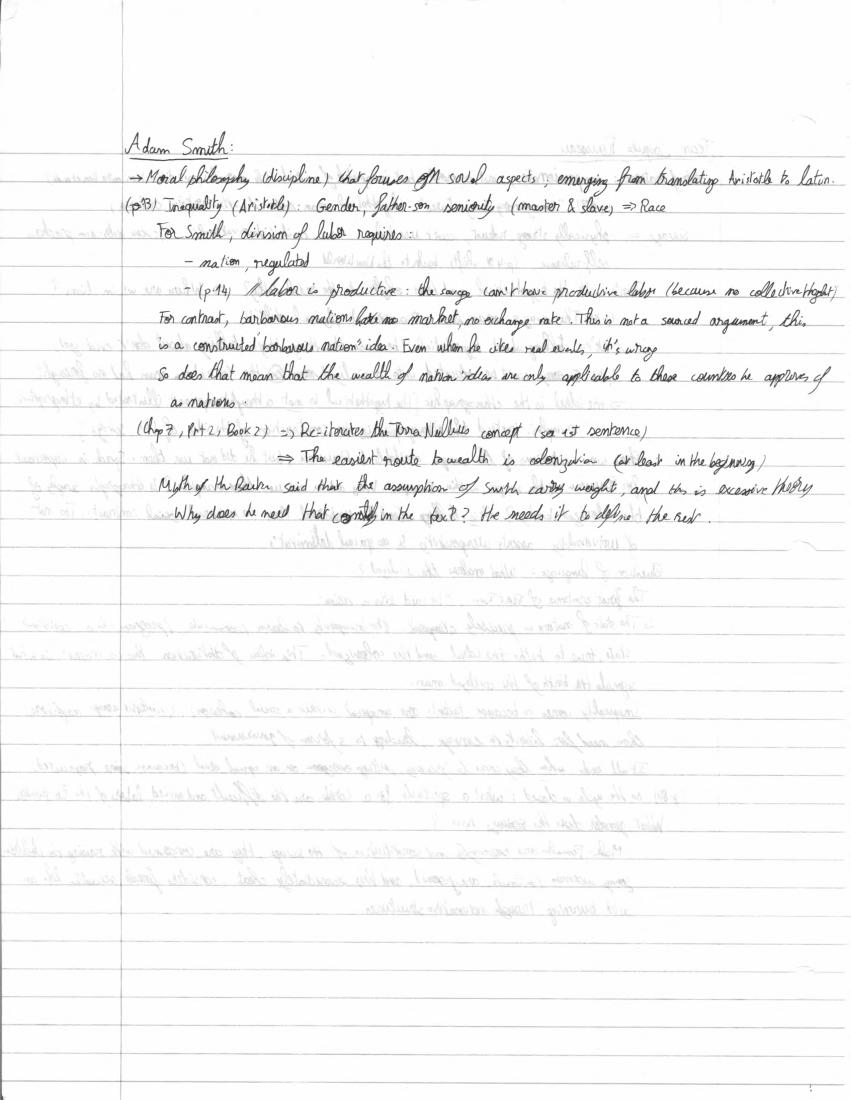 Adam Smith:
→ Moral philosophy (discipline) that focuses on social aspects, emerging from translating Aristotle to latin.
(p93) Inequality (Aristotle): Gender, father-son seniority (master & slave) ⇒ Race
For Smith, division of labor requires:
- nation, regulated
- (p.14) labor is productive: the savage can't have productive labor (because no collective thought)
For contrast, barbarous nations have no market, no exchange rate. This is not a sourced argument, this
is a constructed "barbarous nation" idea. Even when he cites real events, it's wrong
So does that mean that the wealth of nation ideas are only applicable to these countries he approves of
as nations.
(Chp 7, Prt 2, Book 2) → Re-iterates the Terra Nullius concept (see 1st sentence)
⇒ The easiest route to wealth is colonization (at least in the beginning)
Myth of th said that the assumption of Smith carries weight, and this is excessive theory
Why does he need that in the text? He needs it to define the rest.